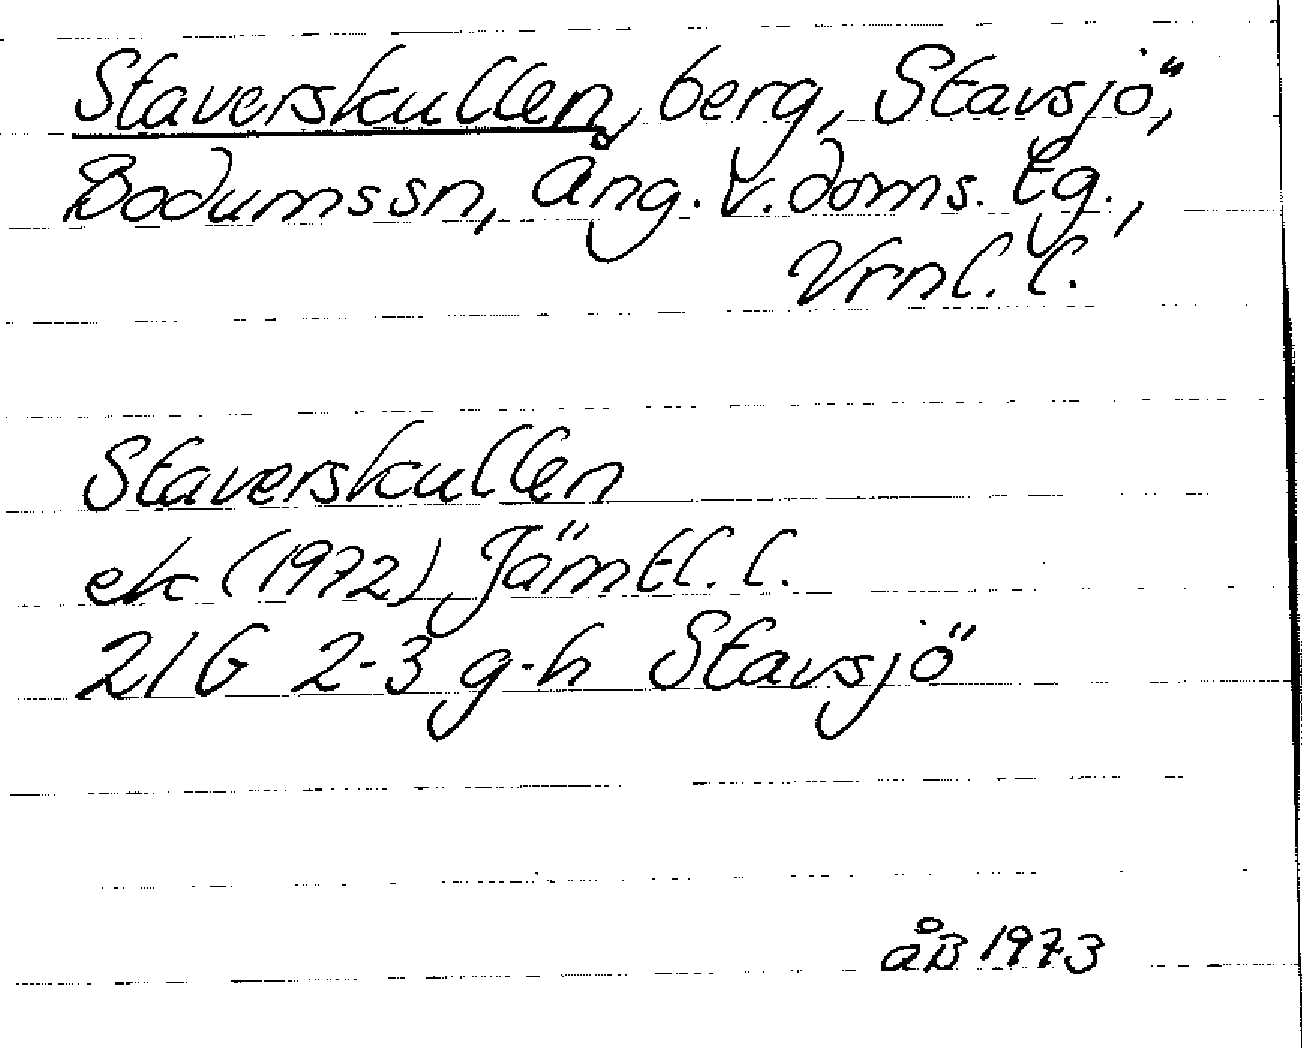 Staverskullen, berg, Stavsjö,
Bodumssn, Ång. v. doms. tg.,
Vrnl. l.
Staverskullen
ek (1972) Jämtl. l.
21G 2-3 g-h Stavsjö
åB 1973